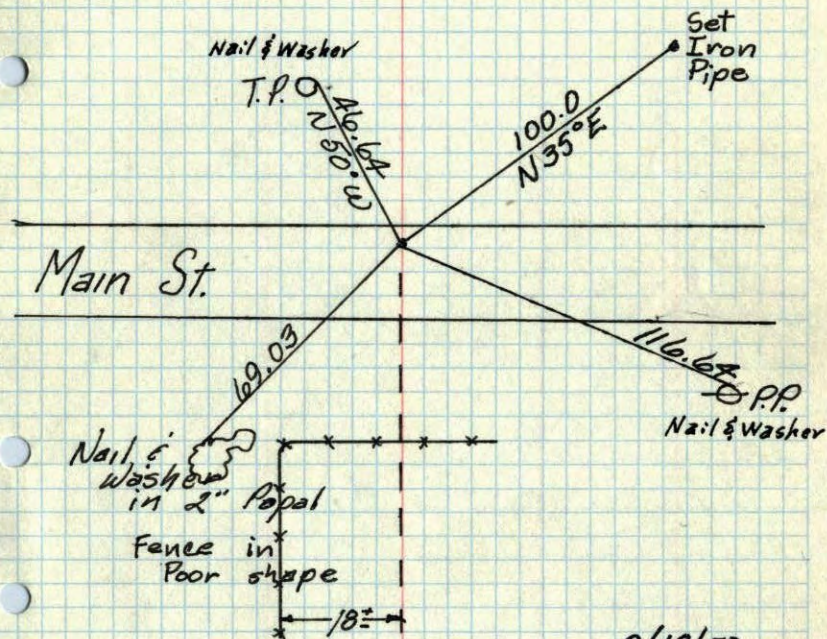 Set
Iron
Pipe
Nail & Washer
T.P.
46.64
N 50° W
100.0
N 35° E
Main St.
69.03
116.64
P.P.
Nail & Washer
Nail &
Washer
in 2" Popal
Fence in
Poor shape
18±